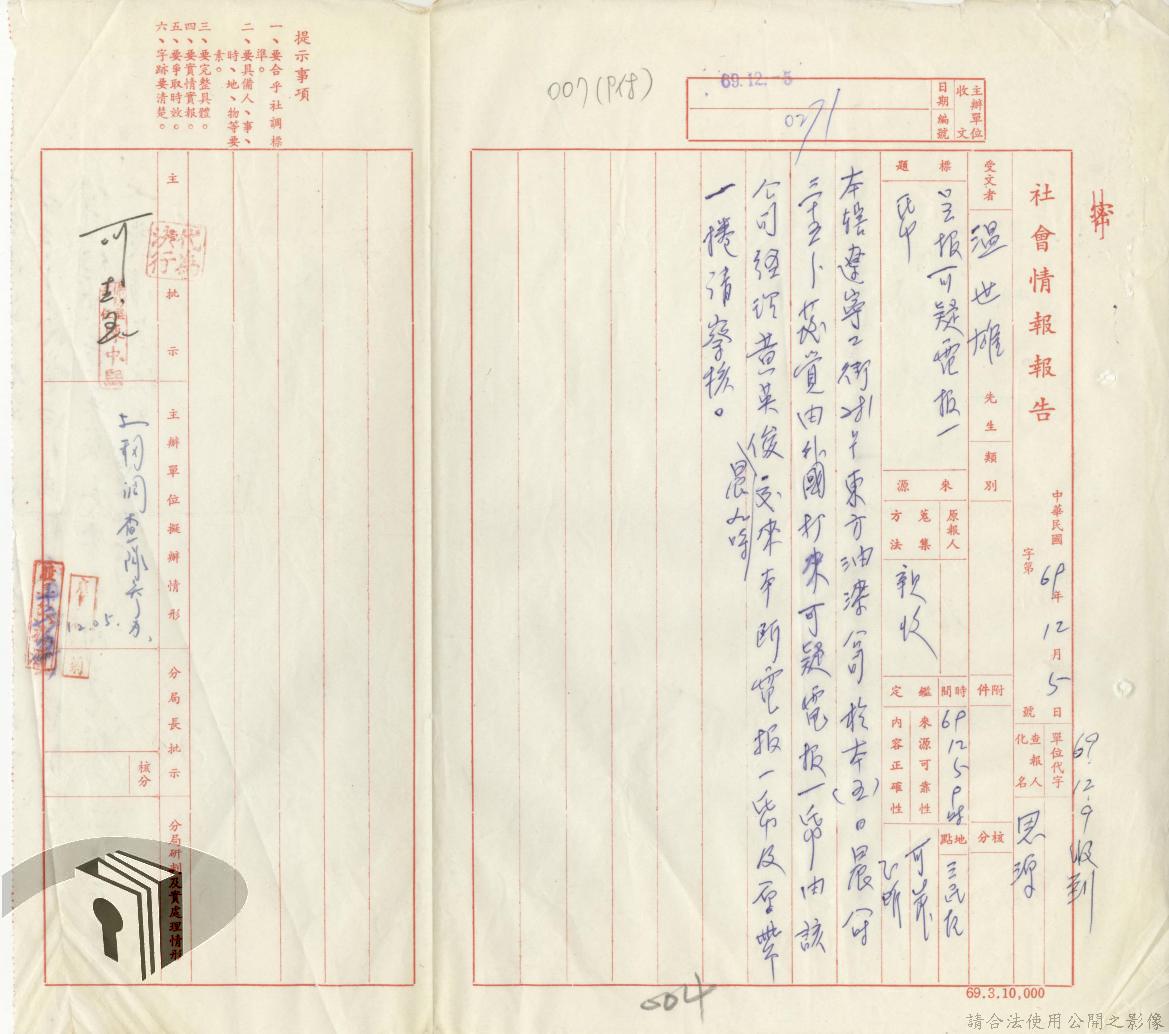 密
69.12.9收到
社會情報報告
中華民國69年12月5日
字第 號
單位代字
查報人化名
思源
受文者
溫世雄先生
類別
附件
核分
標題
呈报可疑電报一
帋
來源
原報人
蒐集方法
親收
時間
69 12 5
地點
三民
鑑定
來源可靠性
可靠
內容正確性
正確
主辦單位收文
日期
編號
69.12.-5
0271
007(P付)
本轄遼寧二街281号東方油漆公司於本(五)日晨
由外國打來可疑電报一帋由該
公司經理黃英俊交來本所電报一帋及
晨九時
一捲請察核。
提示事項
一、要合乎社調標準。
二、要具備人、事、時、地、物等要素。
三、要完整具體。
四、要實情實報。
五、要爭取時效。
六、字跡要清楚。
主 批 示
代為決行
可
主辦單位擬辦情形
12.05.
分局長批示
核分
分局研判及實處理情形
004
69.3.10,000
請合法使用公開之影像